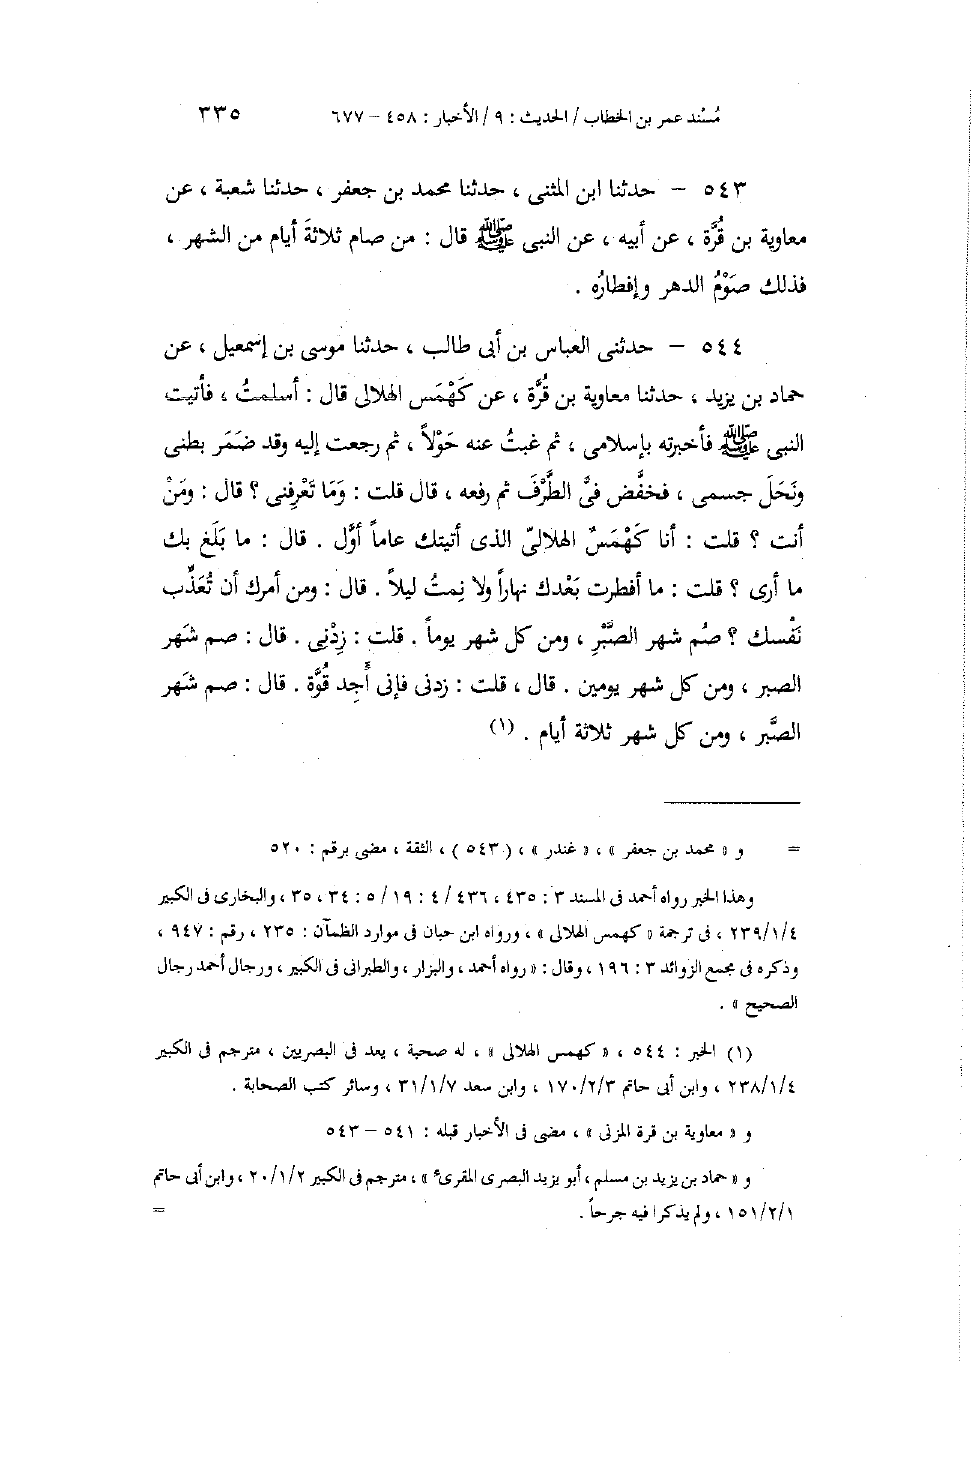 مُسْند عمر بن الخطاب / الحديث : ٩ / الأخبار : ٤٥٨ – ٦٧٧ ٣٣٥
٥٤٣ – حدثنا ابن المثنى ، حدثنا محمد بن جعفر ، حدثنا شعبة ، عن
معاوية بن قُرَّة ، عن أبيه ، عن النبى ﷺ قال : من صام ثلاثةَ أيام من الشهر ،
فذلك صَوْمُ الدهر وإفطارُه .
٥٤٤ – حدثنى العباس بن أبى طالب ، حدثنا موسى بن إسمعيل ، عن
حماد بن يزيد ، حدثنا معاوية بن قُرَّة ، عن كَهْمَس الهلالى قال : أسلمتُ ، فأتيت
النبى ﷺ فأخبرته بإسلامى ، ثم غبتُ عنه حَوْلاً ، ثم رجعت إليه وقد ضَمَر بطنى
ونَحَلَ جسمى ، فخفَّض فىَّ الطَّرْفَ ثم رفعه ، قال قلت : وَمَا تَعْرِفنى ؟ قال : ومَنْ
أنت ؟ قلت : أنا كَهْمَسٌ الهلالىّ الذى أتيتك عاماً أوَّل . قال : ما بَلَغ بك
ما أرى ؟ قلت : ما أفطرت بَعْدك نهاراً ولا نِمتُ ليلاً . قال : ومن أمرك أن تُعَذِّب
نَفْسك ؟ صُم شهر الصَّبْرِ ، ومن كل شهر يوماً . قلت : زِدْنِى . قال : صم شَهر
الصبر ، ومن كل شهر يومين . قال ، قلت : زدنى فإنى أَجِد قُوَّة . قال : صم شَهر
الصَّبر ، ومن كل شهر ثلاثة أيام . (١)
= و « محمد بن جعفر » ، « غندر » ، ( ٥٤٣ ) ، الثقة ، مضى برقم : ٥٢٠
وهذا الخبر رواه أحمد فى المسند ٣ : ٤٣٥ ، ٤٣٦ / ٤ : ١٩ / ٥ : ٣٤ ، ٣٥ ، والبخارى فى الكبير
٢٣٩/١/٤ ، فى ترجمة « كهمس الهلالى » ، ورواه ابن حبان فى موارد الظمآن : ٢٣٥ ، رقم : ٩٤٧ ،
وذكره فى مجمع الزوائد ٣ : ١٩٦ ، وقال : « رواه أحمد ، والبزار ، والطبرانى فى الكبير ، ورجال أحمد رجال
الصحيح » .
(١) الخبر : ٥٤٤ ، « كهمس الهلالى » ، له صحبة ، يعد فى البصريين ، مترجم فى الكبير
٢٣٨/١/٤ ، وابن أبى حاتم ١٧٠/٢/٣ ، وابن سعد ٣١/١/٧ ، وسائر كتب الصحابة .
و « معاوية بن قرة المزنى » ، مضى فى الأخبار قبله : ٥٤١ – ٥٤٣
و « حماد بن يزيد بن مسلم ، أبو يزيد البصرى المقرىء » ، مترجم فى الكبير ٢٠/١/٢ ، وابن أبى حاتم
١٥١/٢/١ ، ولم يذكرا فيه جرحاً . =